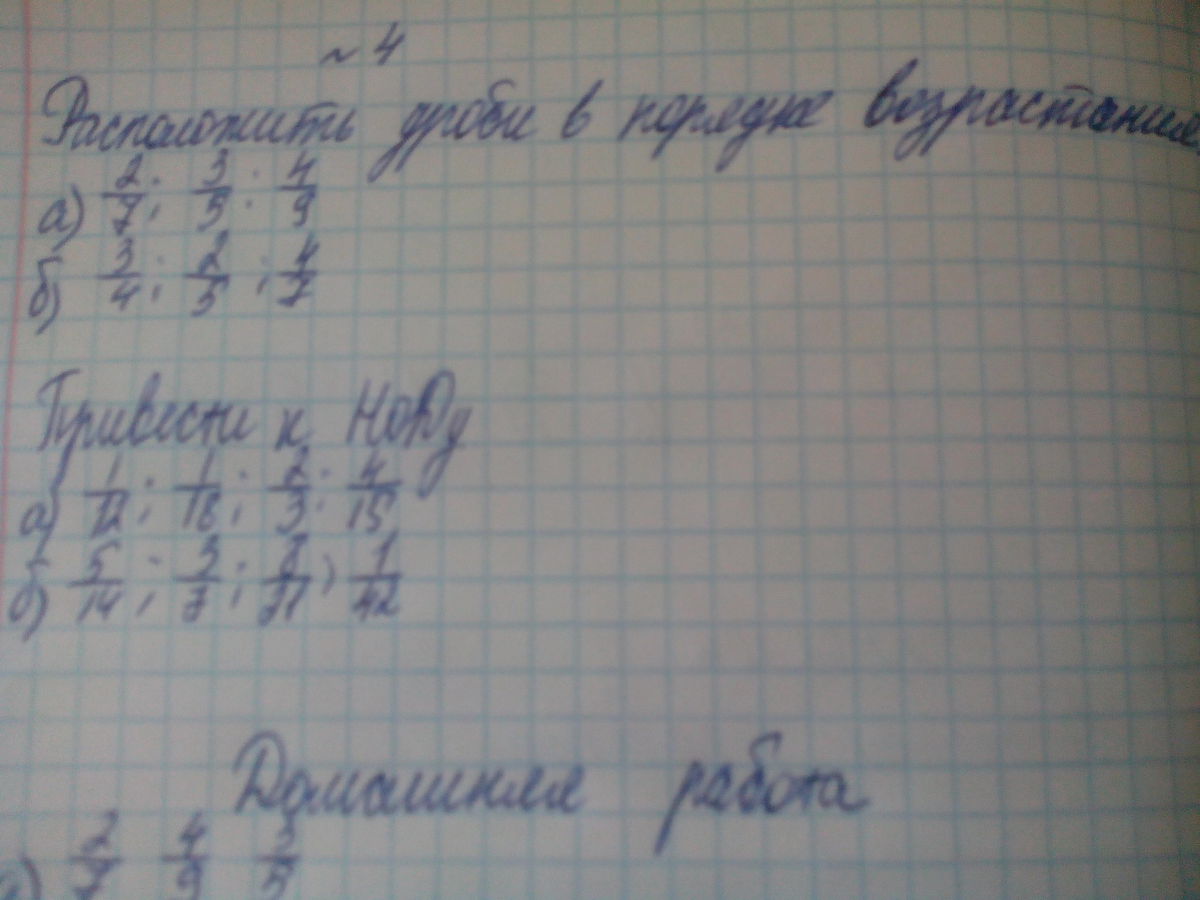 ~ 4
Расположить дроби в порядке возрастания.
а) 2/7; 3/5; 4/9
б) 3/4; 2/5; 4/7
Привести к НОДу
а) 1/12; 1/18; 2/3; 4/15
б) 5/14; 3/7; 8/21; 1/42
Домашняя работа
а) 2/7 4/9 3/5